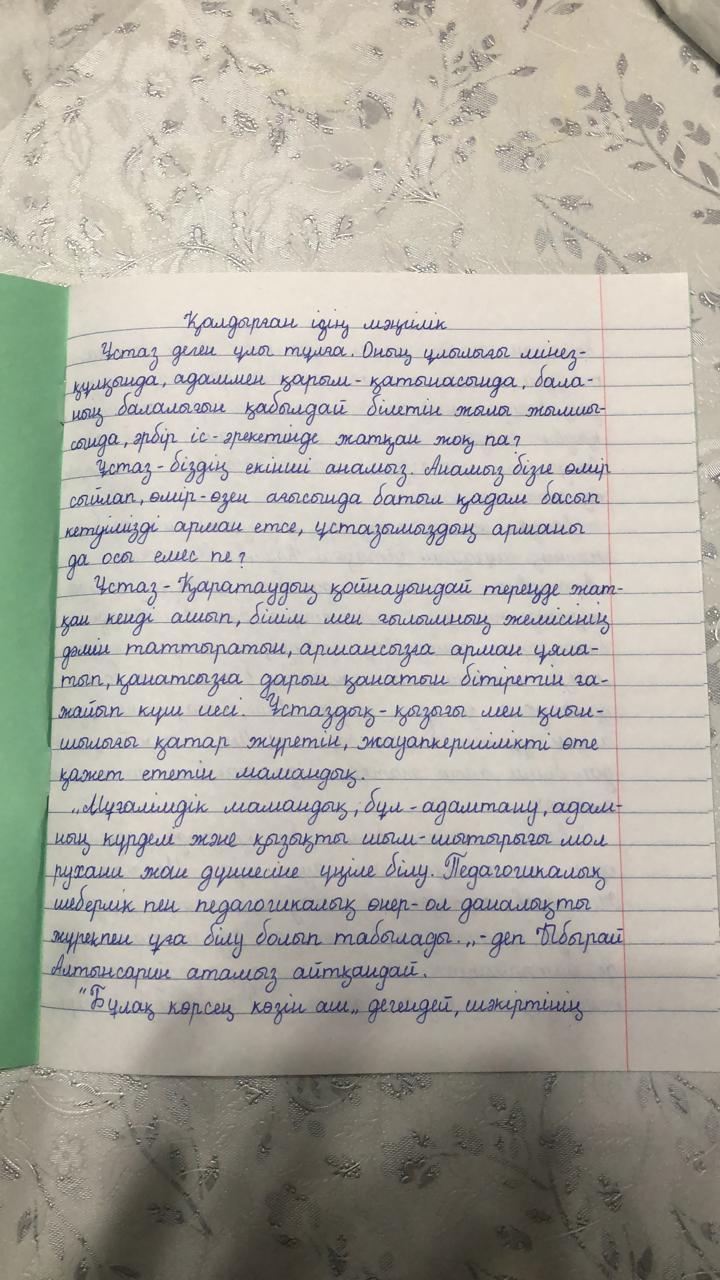 Қалдырған ізің мәңгілік
Ұстаз деген ұлы тұлға. Оның ұлылығы мінез-
құлқында, адаммен қарым-қатынасында, бала-
ның балалығын қабылдай білетін жылы жымиы-
сында, әрбір іс-әрекетінде жатқан жоқ па?
Ұстаз-біздің екінші анамыз. Анамыз бізге өмір
сыйлап, өмір-өзен ағысында батыл қадам басып
кетуімізді арман етсе, ұстазымыздың арманы
да осы емес пе?
Ұстаз-Қаратаудың қойнауындай тереңде жат-
қан кенді ашып, білім мен ғылымның жемісінің
дәмін таттыратын, армансызға арман ұяла-
тып, қанатсызға дарын қанатын бітіретін ға-
жайып күш иесі. Ұстаздық-қызығы мен қиын-
шылығы қатар жүретін, жауапкершілікті өте
қажет ететін мамандық.
„Мұғалімдік мамандық, бұл-адамтану, адам-
ның күрделі және қызықты шым-шытырығы мол
рухани жан дүниесіне үңіле білу. Педагогикалық
шеберлік пен педагогикалық өнер-ол даналықты
жүрекпен ұға білу болып табылады.„-деп Ыбырай
Алтынсарин атамыз айтқандай.
"Бұлақ көрсең көзін аш„ дегендей, шәкіртінің